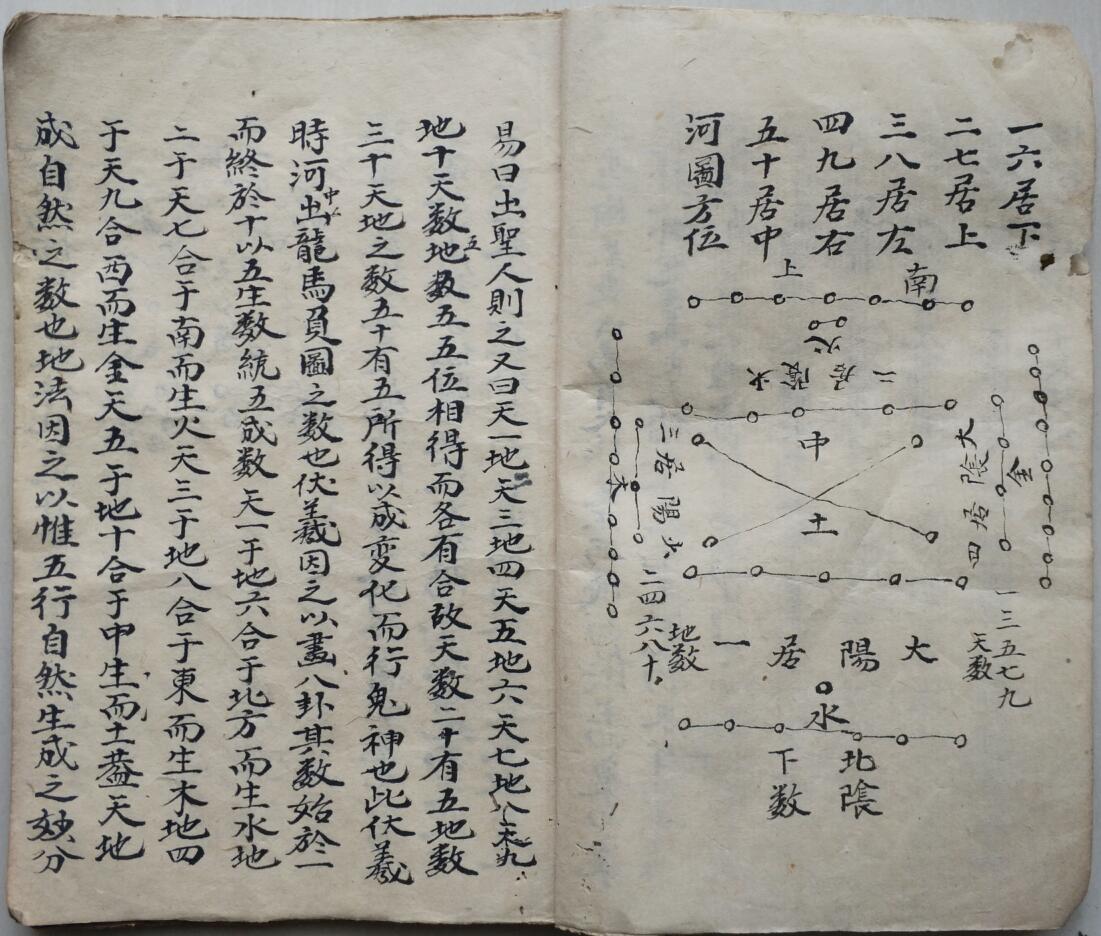 一六居下
二七居上
三八居左
四九居右
五十居中
河圖方位
南
上
火
二居陰火
中
土
三居陽火
木
四居陰大
金
二四六八十
地数
一三五七九
天数
大陽居一
水
北陰
下数
易曰出聖人則之又曰天一地天三地四天五地六天七地八天九
地十天数五地数五五位相得而各有合故天数二十有五地数
三十天地之数五十有五所得以成变化而行鬼神也此伏羲
時河中出龍馬負圖之数也伏羲因之以畫八卦其数始於一
而終於十以五生数統五成数天一于地六合于北方而生水地
二于天七合于南而生火天三于地八合于東而生木地四
于天九合西而生金天五于地十合于中生而土蓋天地
成自然之数也地法因之以惟五行自然生成之妙分